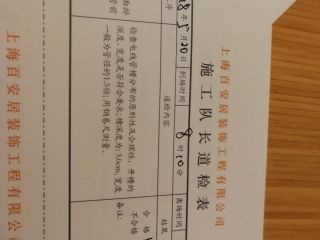 上海百安居装饰工程有限公司
施工队长道检表
年5月20日 到场时间 8时10分 离场时间
道检内容
结果
检查电线管槽分布的原则性及合理性,开槽的
深度、宽度是否符合要求;槽深度为:3.0cm,宽度
一般为管径的1.5倍;用钢卷尺测量。
合格
不合格
备注:
上海百安居装饰工程有限公司